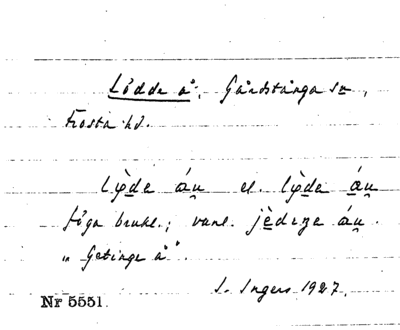 Lödde å, Gårdstånga sn,
Frosta hd.
lỳde áu el. lỳde áu
föga brukl.; vanl. jèdɩŋe áu.
„ Getinge å“.
I. Ingers 1927.
Nr 5551.